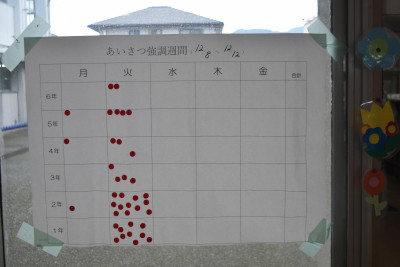 あいさつ強調週間 12/8 ~ 12/12
月 火 水 木 金 合計
6年
5年
4年
3年
2年
1年